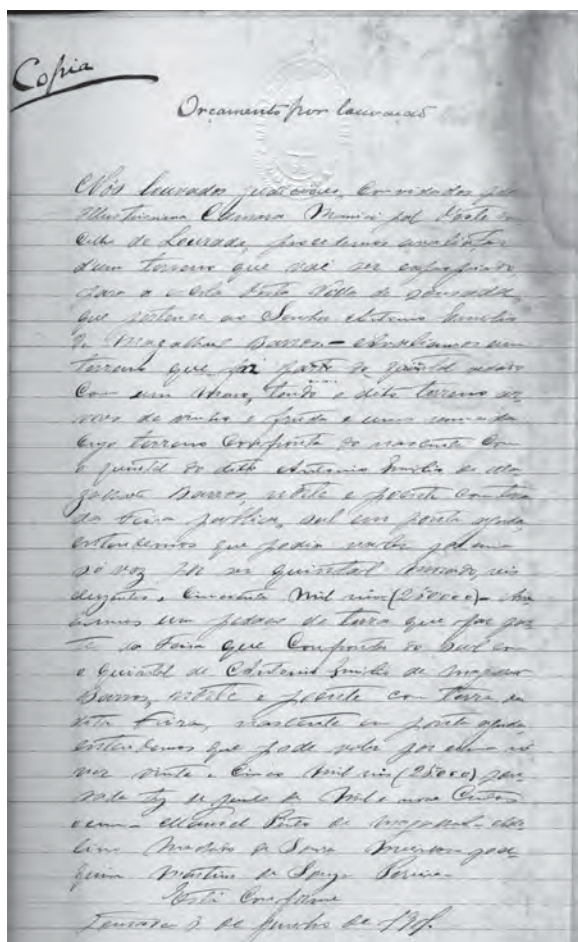 Copia
Orçamento por louvação
Nós louvados judiciaes, convidados pela
Illustrissima Camara Municipal d'esta
Villa de Louzada, procedemos
d'um terreno que vai ser expropriado
para a desta Villa de Louzada,
que pertence ao Senhor Antonio Emilio
de Magalhães Barros = Avaliamos um
terreno que faz parte do quintal vedado
com um muro, tendo o dito terreno ar
vores de vinho e fructa e uma ramada
cujo terreno confronta do nascente com
o quintal do dito Antonio Emilio de Ma
galhães Barros, norte e poente com terra
da Feira publica, sul em ponta aguda,
entendemos que podia valer por uma
só vez ser quintal murado, reis
duzentos e cincoenta mil reis (250000) = Ava
liamos um pedaço de terra que faz par
te da Feira que confronta do sul com
o quintal de Antonio Emilio de Magalhães
Barros, norte e poente com terra da
dita Feira, nascente em ponta aguda,
entendemos que pode valer por uma só
vez vinte e cinco mil reis (25000)
de Junho de mil e nove centos
Manoel Pinto de Magalhães
de Souza
Martins de Souza Pereira
Está conforme
Louzada 3 de Junho de